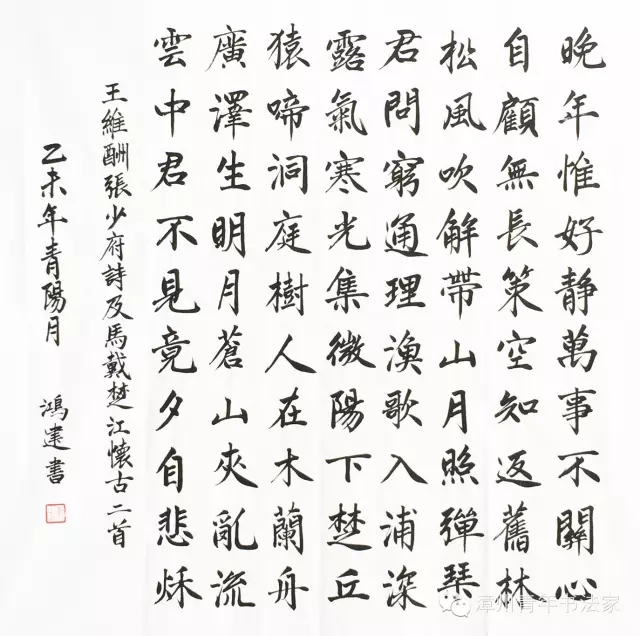 晚年惟好靜萬事不關心
自顧無長策空知返舊林
松風吹解帶山月照彈琴
君問窮通理漁歌入浦深
露氣寒光集微陽下楚丘
猿啼洞庭樹人在木蘭舟
廣澤生明月蒼山夾亂流
雲中君不見竟夕自悲秋
王維酬張少府詩及馬戴楚江懷古二首
乙未年青陽月 鴻建書
漳州青年书法家